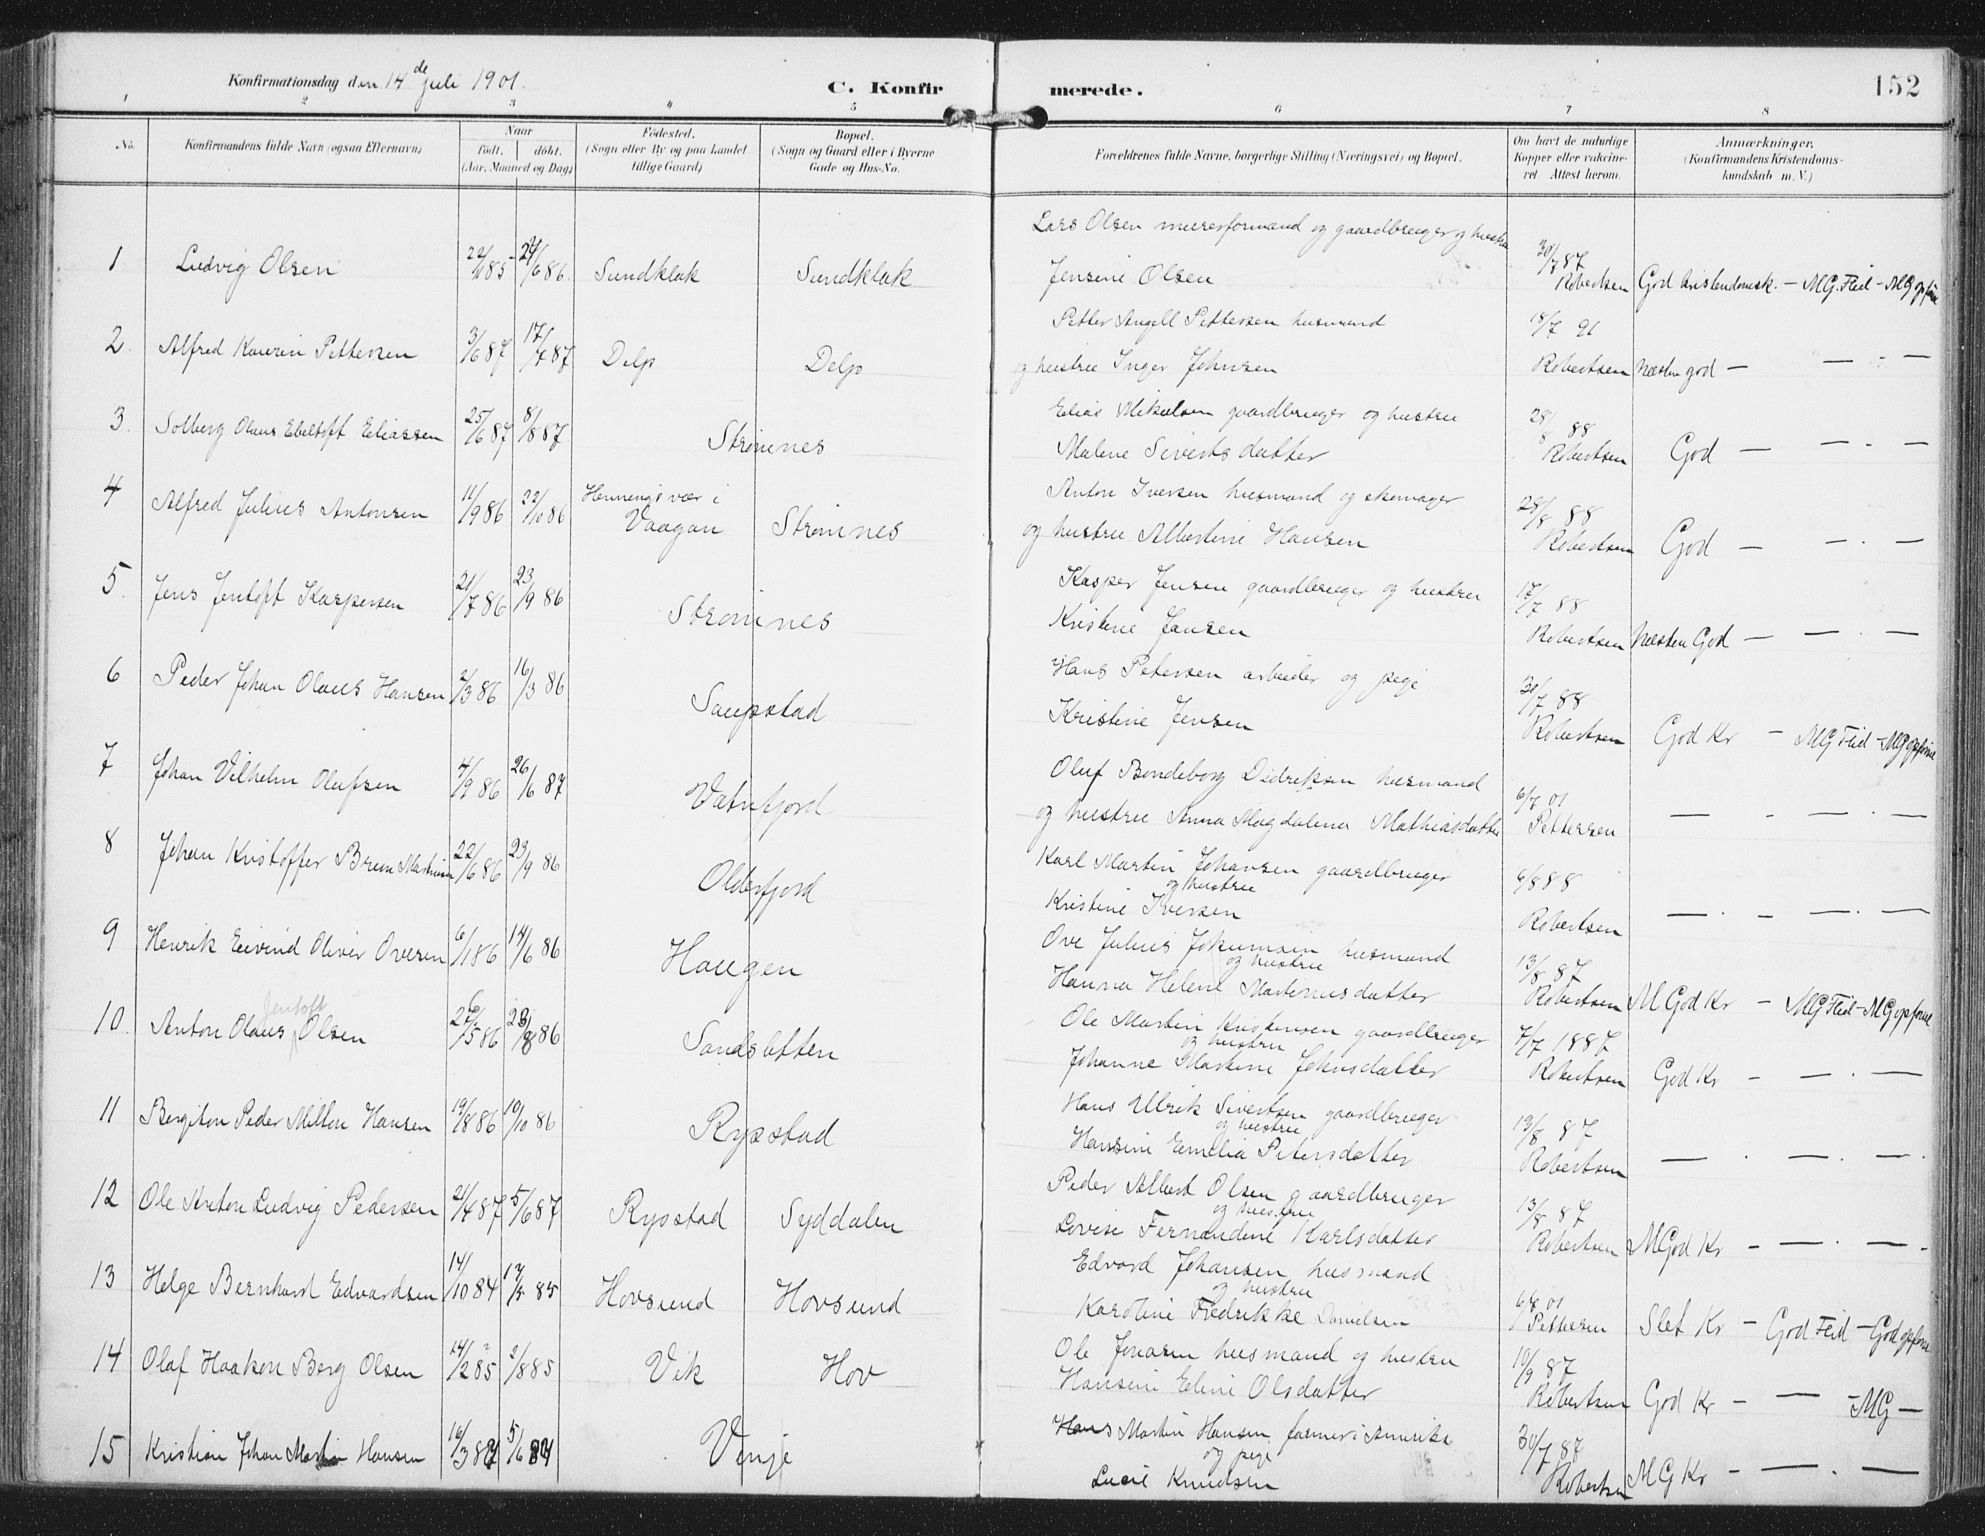 Konfirmationsdag den 14de juli 1901.
C. Konfir merede. 152
1 2 3 4 5 6 7 8
No. Konfirmandens fulde Navn (ogsaa Efternavn) Naar Födested. Bopæl. Forældrenes fulde Navne, borgerlige Stilling (Næringsvei) og Bopæl. Om havt de naturlige Anmærkninger.
födt. döbt. (Sogn eller By og paa Landet (Sogn og Gaard eller i Byerne Kopper eller vakcine- (Konfirmandens Kristendoms-
(Aar, Maaned og Dag) tillige Gaard) Gade og Hus-No. ret Attest herom. kundskab m. V.)
Lars Olsen murerformand og gaardbruger og hustru
1 Ludvig Olsen Sundklak Sundklak Jensine Olsen 30/7 87 Robertsen God Kristendomsk. - MG. Flid - MG opførs
Petter Angell Pettersen husmand
2 Alfred Kaurin Pettersen 3/6 87 17/7 87 Delp Delp og hustru Inger Johnsen 18/7 91 Robertsen Næsten god - - . -
Elias Mikalsen gaardbruger og hustru
3 Solberg Olaus Ebeltoft Eliassen 25/6 87 8/8 87 Strømnes Malene Sivertsdatter 28/8 88 Robertsen God - - . -
Anton Iversen husmand og skomager
4 Alfred Julius Antonsen 11/9 86 22/10 86 Henningsvær i Vaagan Strømnes og hustru Albertine Hansen 28/8 88 Robertsen God - - . -
Kasper Jensen gaardbruger og hustru
5 Jens Jentoft Kaspersen 21/7 86 23/9 86 Strømnes Kristine Jansen 17/7 88 Robertsen Næsten God - - . -
Hans Petersen arbeider og pige
6 Peder Johan Olaus Hansen 2/3 86 16/3 86 Saupstad Kristine Jensen 30/7 88 Robertsen God Kr - MG Flid - MG opførse
Oluf Bendeborg Didriksen husmand
7 Johan Vilhelm Olufsen 4/9 86 26/6 87 Vatnfjord og hustru Anna Magdalena Mathiasdatter 6/7 01 Pettersen - - - . -
Karl Martin Johansen gaardbruger
og hustru
8 Johan Kristoffer 22/6 86 23/9 86 Olderfjord Kristine Iversen 6/8 88 Robertsen - . - - . -
Ove Julius husmand
og hustru
9 Henrik Eivind Oliver Ovesen 6/1 86 14/6 86 Haugen Hanna Helene Martinusdatter 13/8 87 Robertsen M God Kr - MG Flid - MG opførse
Ole Martin Kristensen gaardbruger
og hustru
10 Anton Olaus Jentoft Olsen Sandsletten Johanne Martine Johnsdatter 7/7 1887 Robertsen God Kr - - . -
Hans Ulrik Sivertsen gaardbruger
og hustru
11 Bergiton Peder Milton Hansen 19/8 86 10/10 86 Rystad Hansine Emelia Petersdatter 13/8 87 Robertsen - . - . - .
Peder Albert Olsen gaardbruger
og hustru
12 Ole Anton Ludvig Pedersen 21/4 87 5/6 87 Rystad Syddalen Lovise Fernandine Karlsdatter 13/8 87 Robertsen MGod Kr - - . - .
Edvard Johansen husmand
og hustru
13 Helge Bernhard Edvardsen 14/10 84 Hovsund Hovsund Karoline Fredrikke Danielsen 6/7 01 Pettersen Slet Kr - God Flid - God opførse
Ole Jonasen husmand og hustru
14 Olaf Haakon Berg Olsen 14/2 85 2/8 85 Vik Hov Hansine Eline Olsdatter 10/9 87 Robertsen God Kr - - - MG -
Hans Martin Hansen farmer i Amerika
og pige
15 Kristian Johan Martin Hansen Venje Knudsen 30/7 87 Robertsen MG Kr - - . -